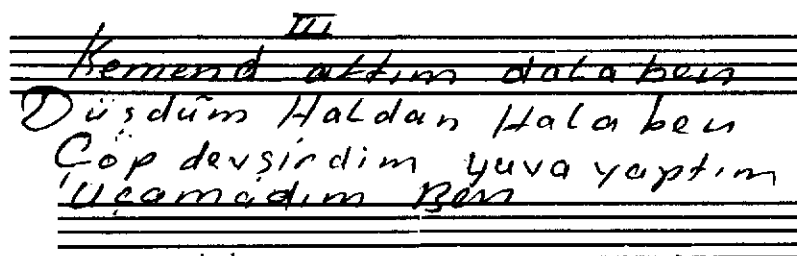 III
Kemend attım dala ben
Düşdüm Haldan Hala ben
Çöp devşirdim yuva yaptım
Uçamadım Ben